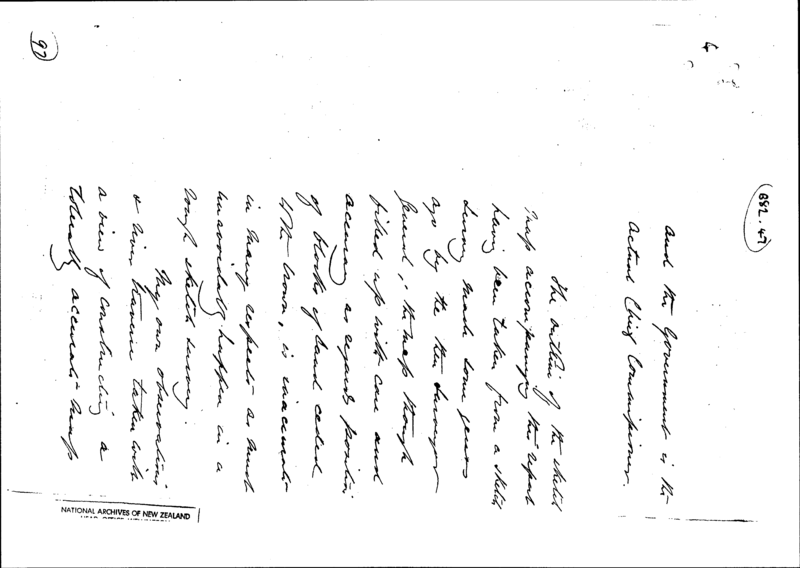 882.47
4
and the Government is the
Actual Chief Commissioner.
The outline of the sketch
map accompanying the report
having been taken from a sketch
survey made some years
ago by the then Surveyor
General; the map though
filled up with care and
accuracy as regards position
of blocks of land ceded
to the Crown, is inaccurate
in many respects as must
unavoidably happen in a
rough sketch survey.
My own observations
& river traverse taken with
a view of constructing a
tolerably accurate map
92
NATIONAL ARCHIVES OF NEW ZEALAND